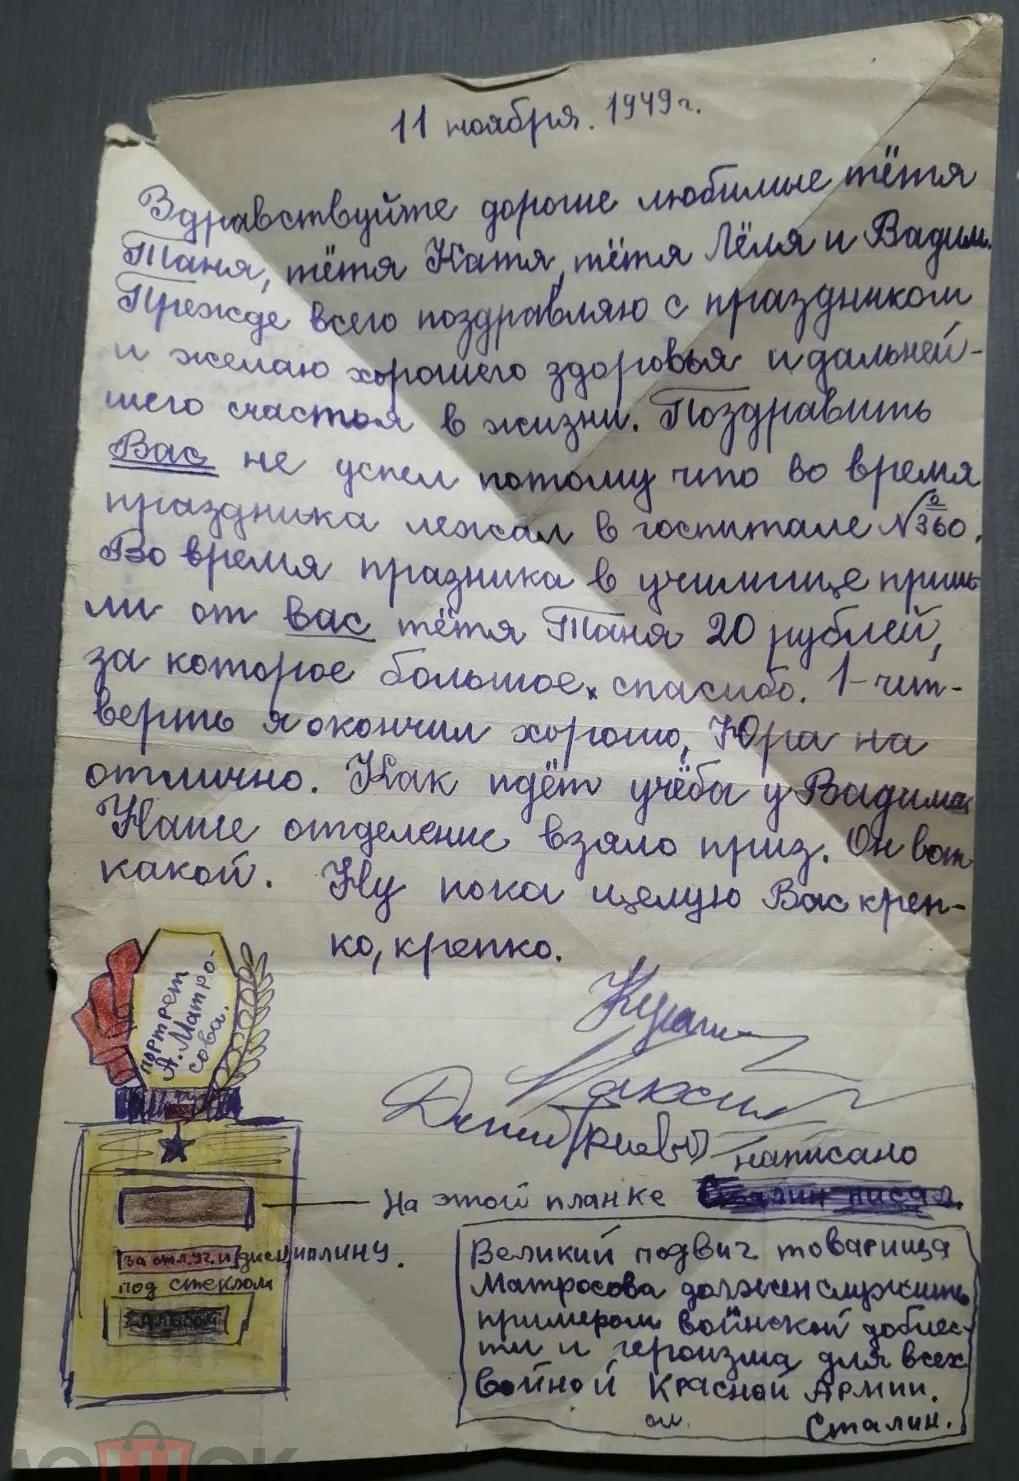 11 ноября. 1949 г.
Здравствуйте дорогие любимые тётя
Таня, тётя Катя, тётя Лёля и Вадим.
Прежде всего поздравляю с праздником
и желаю хорошего здоровья и дальней-
шего счастья в жизни. Поздравить
Вас не успел потому что во время
праздника лежал в госпитале № 360.
Во время празника в училище приш-
ли от вас тётя Таня 20 рублей,
за которое большое спасибо. 1-чит-
верть я окончил хорошо, Юра на
отлично. Как идёт учёба у Вадима
Наше отделение взяло приз. Он вот
какой. Ну пока целую Вас креп-
ко, крепко.
портрет
А. Матро-
сова.
написано
На этой планке Сталин писал.
за отл. уч. и дисциплину.
под стеклом
Альбом
Великий подвиг товарища
Матросова должен служить
примером воинской доблес-
ти и героизма для всех
войной Красной Армии.
Сталин.